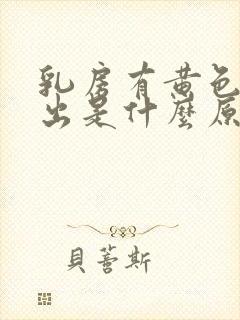 乳房有黄色
出是什麼原
貝蕾斯